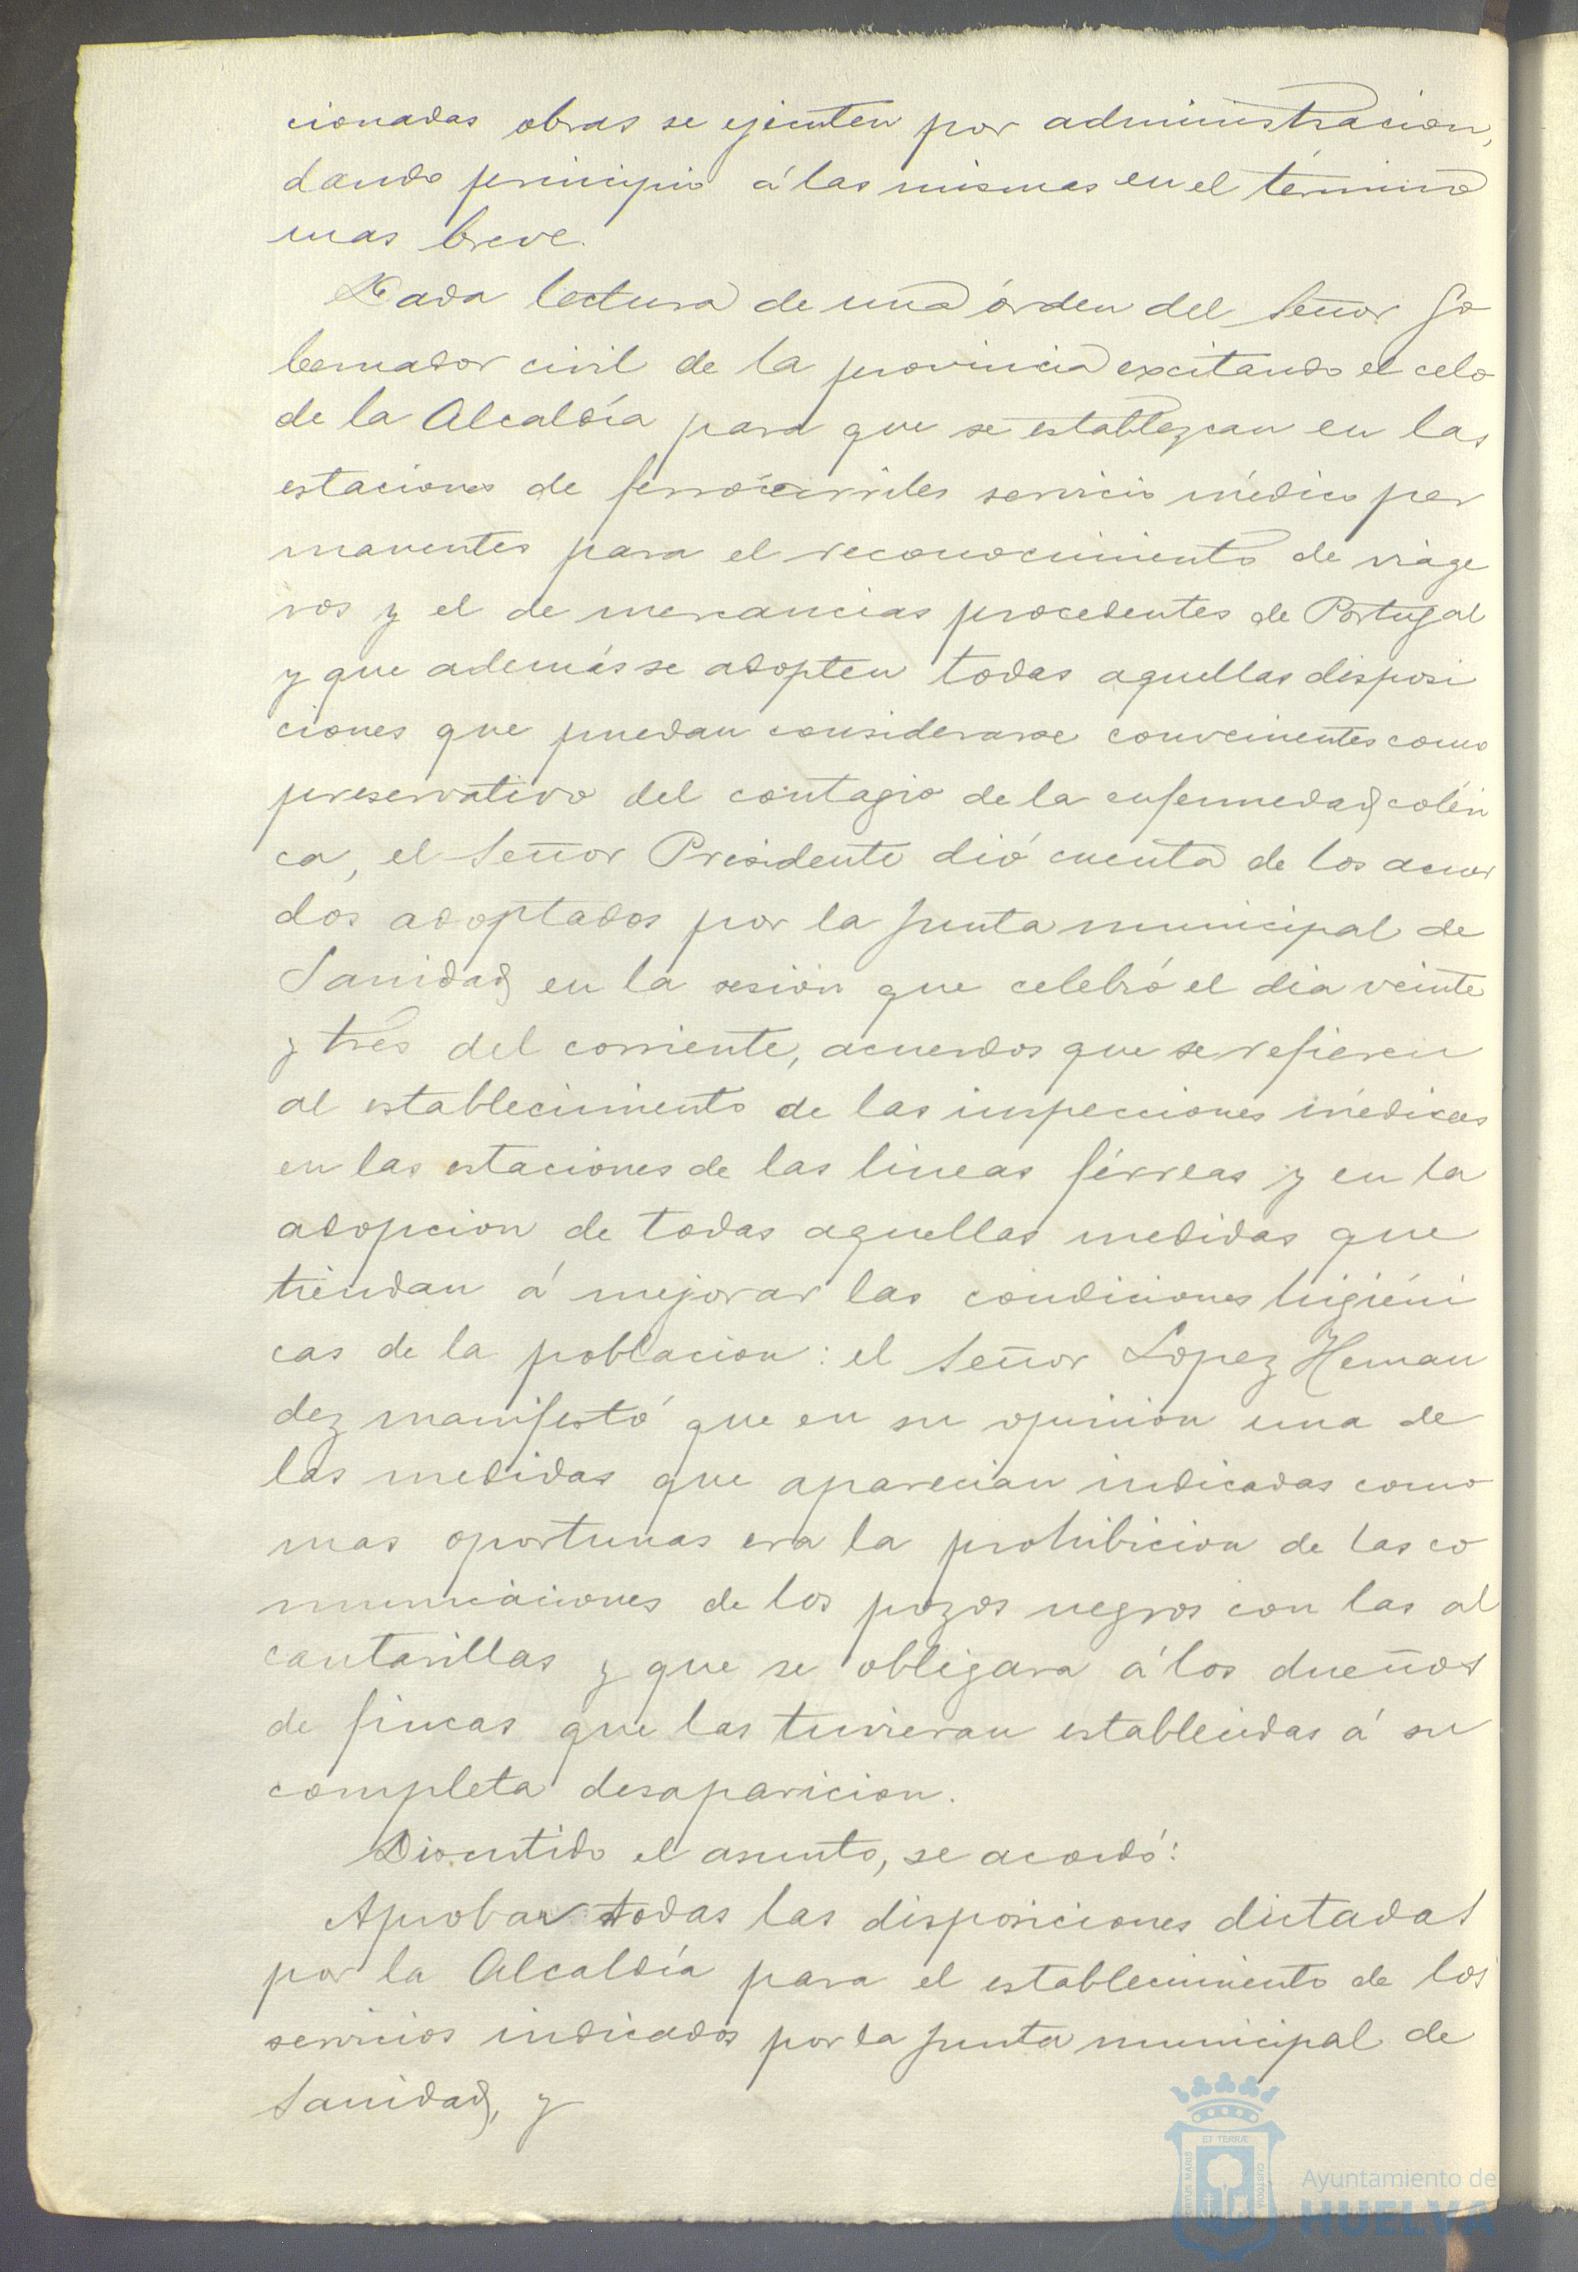 cionadas obras se ejecuten por administracion,
dando principio á las mismas en el término
mas breve.
Dada lectura de una órden del Señor Go
bernador civil de la provincia excitando el celo
de la Alcaldía para que se establezcan en las
estaciones de ferrocarriles servicio médico per
manentes para el reconocimiento de viage
ros y el de mercancias procedentes de Portugal
y que además se adopten todas aquellas disposi
ciones que puedan considerarse convenientes como
preservativo del contagio de la enfermedad coléri
ca, el Señor Presidente dió cuenta de los acuer
dos adoptados por la Junta municipal de
Sanidad en la sesión que celebró el dia veinte
y tres del corriente, acuerdos que se refieren
al establecimiento de las inspecciones médicas
en las estaciones de las lineas férreas y en la
adopcion de todas aquellas medidas que
tiendan á mejorar las condiciones higiéni
cas de la poblacion: el Señor Lopez Hernan
dez manifestó que en su opinion una de
las medidas que aparecian indicadas como
mas oportunas era la prohibicion de las co
municaciones de los pozos negros con las al
cantarillas y que se obligara á los dueños
de fincas que las tuvieran establecidas á su
completa desaparicion.
Discutido el asunto, se acordó:
Aprobar todas las disposiciones dictadas
por la Alcaldía para el establecimiento de los
servicios indicados por la Junta municipal de
Sanidad, y
ET TERRÆ
PORTUS MARIS
CUSTODIA
Ayuntamiento de
HUELVA